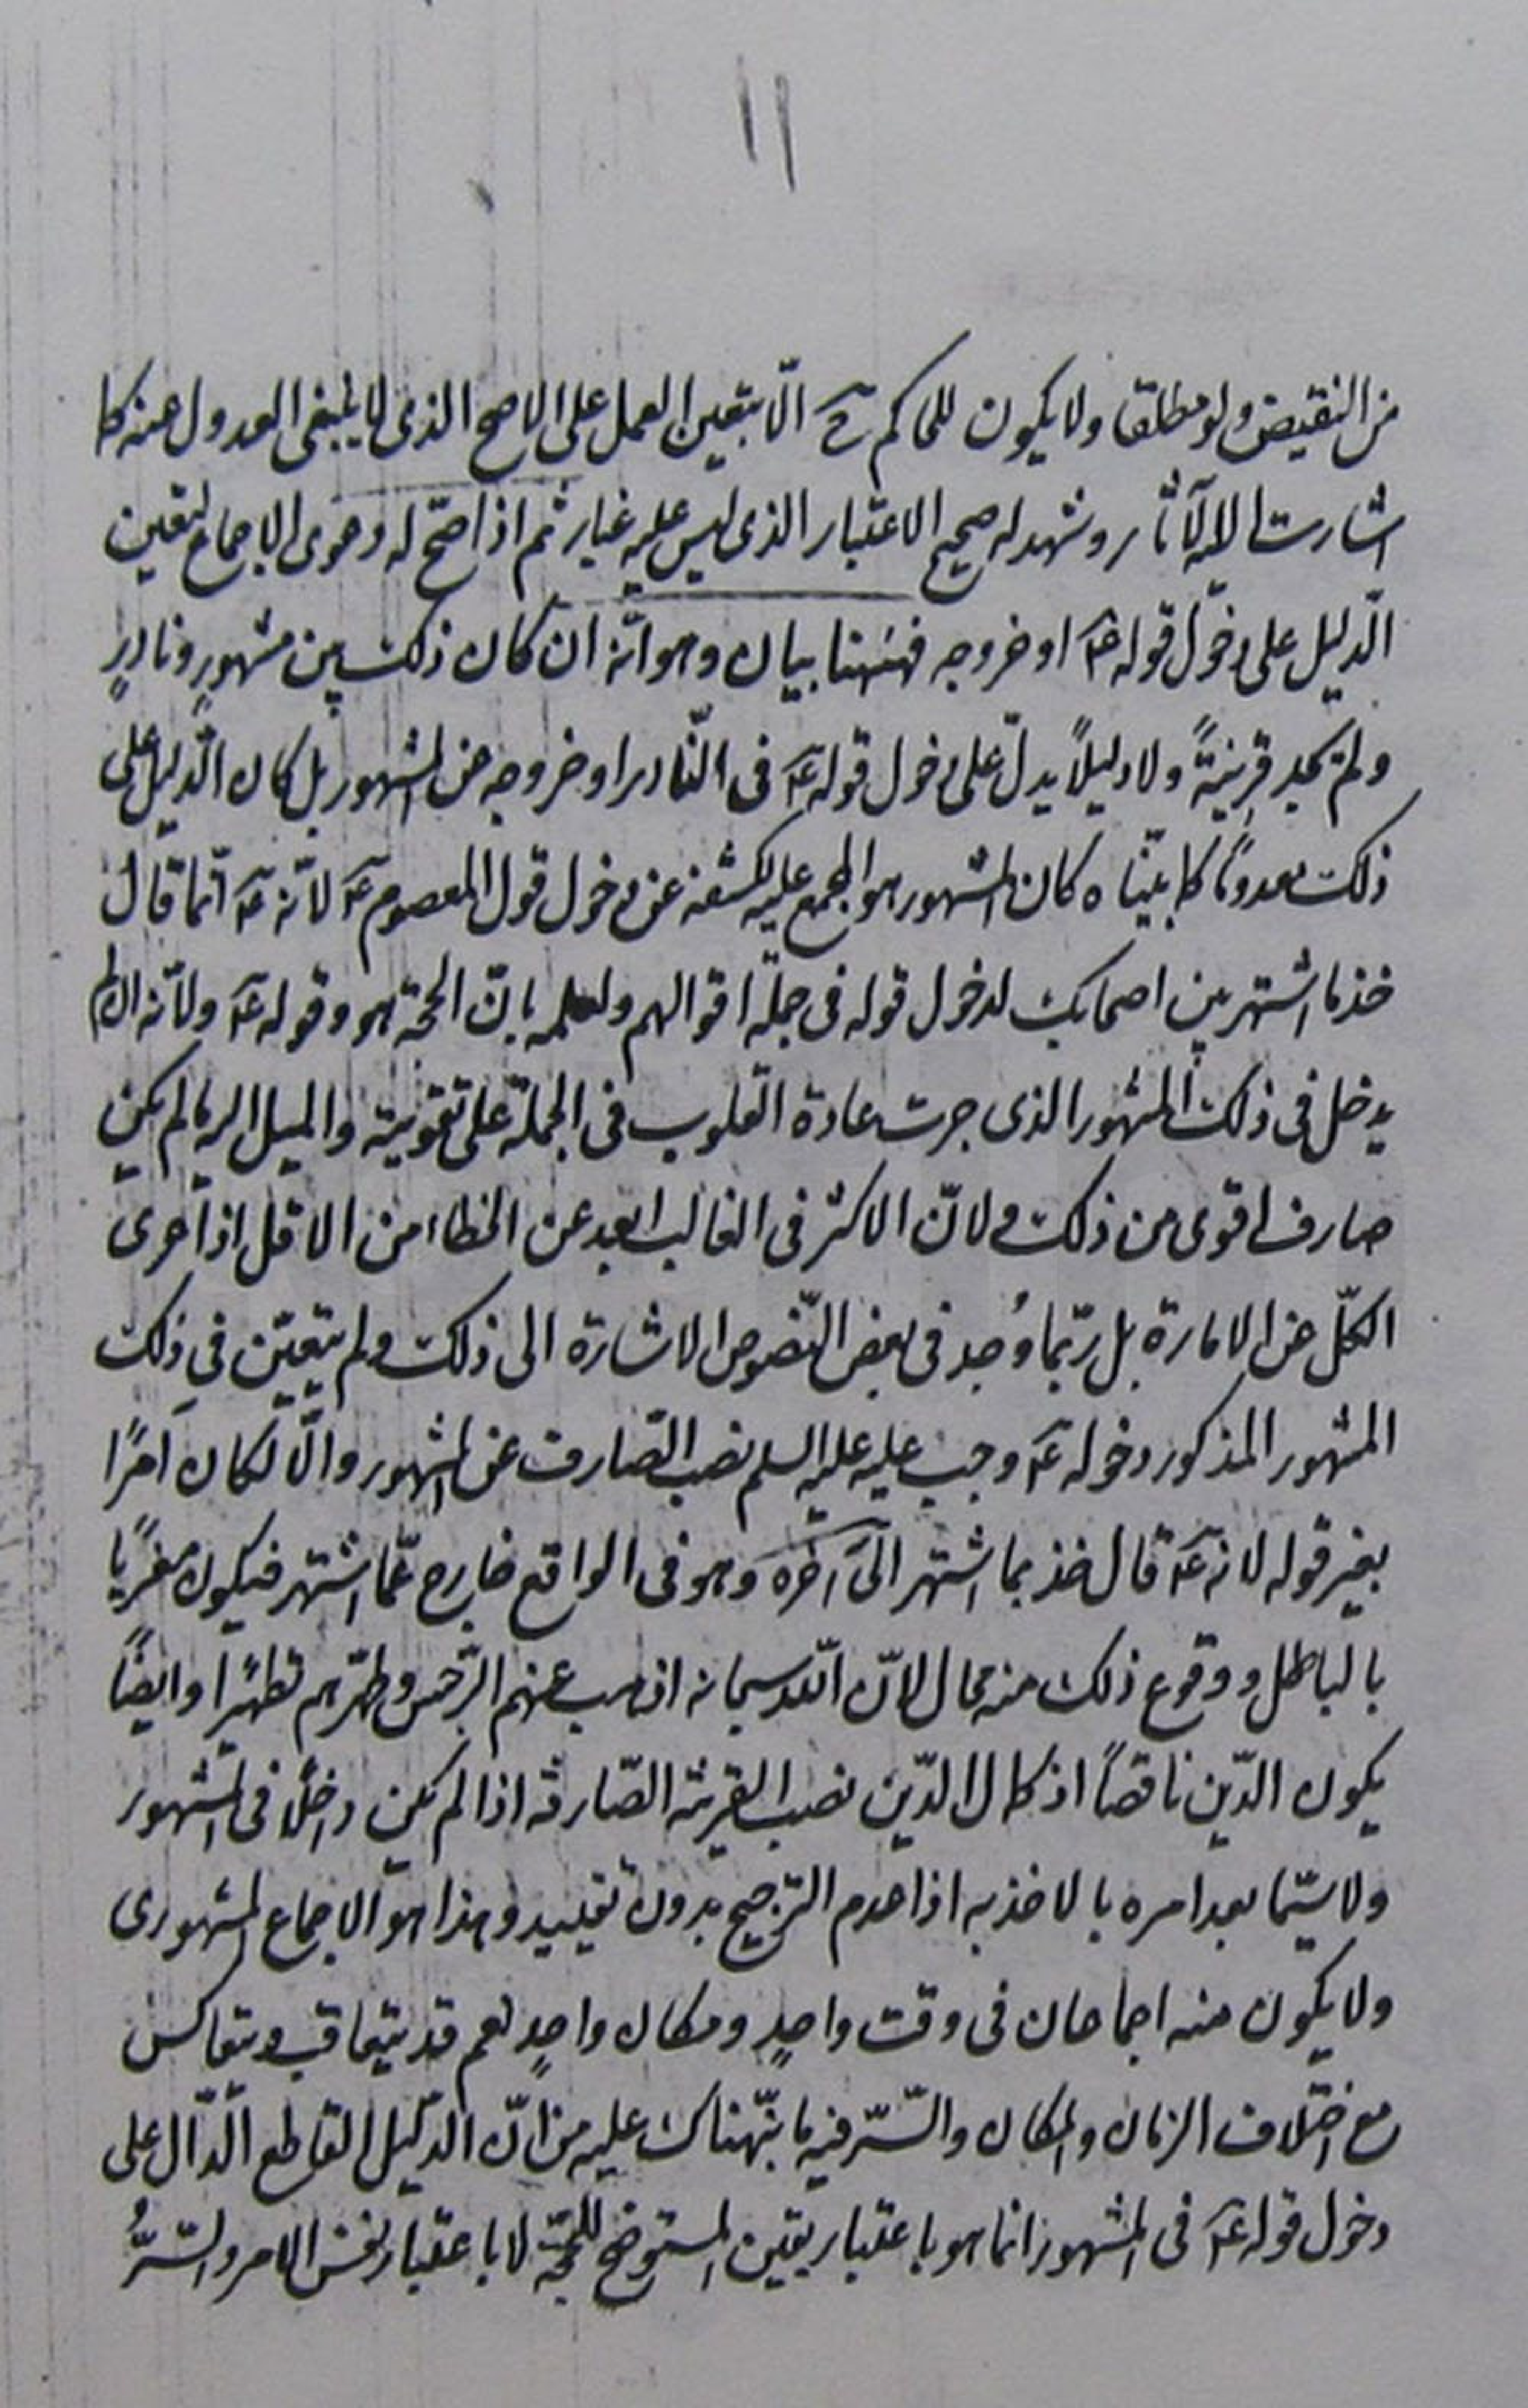 ١١
من النقيض ولو مطلقا ولا يكون للحاكم ح الّا بتعين العمل على الاصح الذى لا ينبغى العدول عنه كما
اشارت اليه الآثار وشهد له صحيح الاعتبار الذى ليس عليه غبار ثم اذا صحّ له دعوى الاجماع لتعين
الدّليل على دخول قوله عَ او خروجه فههنا بيان وهو انّه ان كان ذلك بين مشهورٍ ونادرٍ
ولم يجد قرينيةً ولا دليلاً يدلّ على دخول قوله عَ فى النّادر او خروجه من المشهور بل كان الدّليل على
ذلك معدومًا كما بيّناه كان المشهور هو المجمع عليه لكشفه عن دخول قول المعصوم عَ لانّه عَ انّما قال
خذ ما اشتهر بين اصحابك لدخول قوله فى جملة اقوالهم ولعلمه بانّ الحجّة هو وقوله عَ ولانّه
يدخل فى ذلك المشهور الذى جرت عادة القلوب فى الجملة على تقويته والميل اليه ما لم يكن
صارف اقوى من ذلك ولانّ الاكثر فى الغالب ابعد عن الخطاء من الاقل اذا عرى
الكلّ عن الامارة بل ربّما وُجد فى بعض النّصوص الاشارة الى ذلك ولم يتعيّن في ذلك
المشهور المذكور دخوله عَ وجب عليه عليه السلم نصب الصّارف عن المشهور والّا لكان امرًا
بغير قوله لانه عَ قال خذ بما اشتهر الى آخره وهو فى الواقع خارج عمّا اشتهر فيكون مغريًا
بالباطل ووقوع ذلك منه محال لانّ اللّه سبحانه اذهب عنهم الرّجس وطهّرهم تطهيرًا وايضًا
يكون الدّين ناقصاً اذ كمال الدّين نصب القرينة الصّارفة اذا لم يكن داخلًا فى المشهور
ولا سيّما بعد امره بالاخذ به اذا عدم الترجيح بدون تقييد وهذا هو الاجماع المشهورى
ولا يكون منه اجماعان فى وقت واحدٍ ومكان واحدٍ نعم قد يتعاقب ويتعاكس
مع اختلاف الزمان والمكان والسّرّ فيه ما نبّهناك عليه من انّ الدّليل القاطع الدّال على
دخول قوله عَ فى المشهور انما هو باعتبار يقين المستوضح للحجّة لا باعتبار نفس الامر والسّرُّ